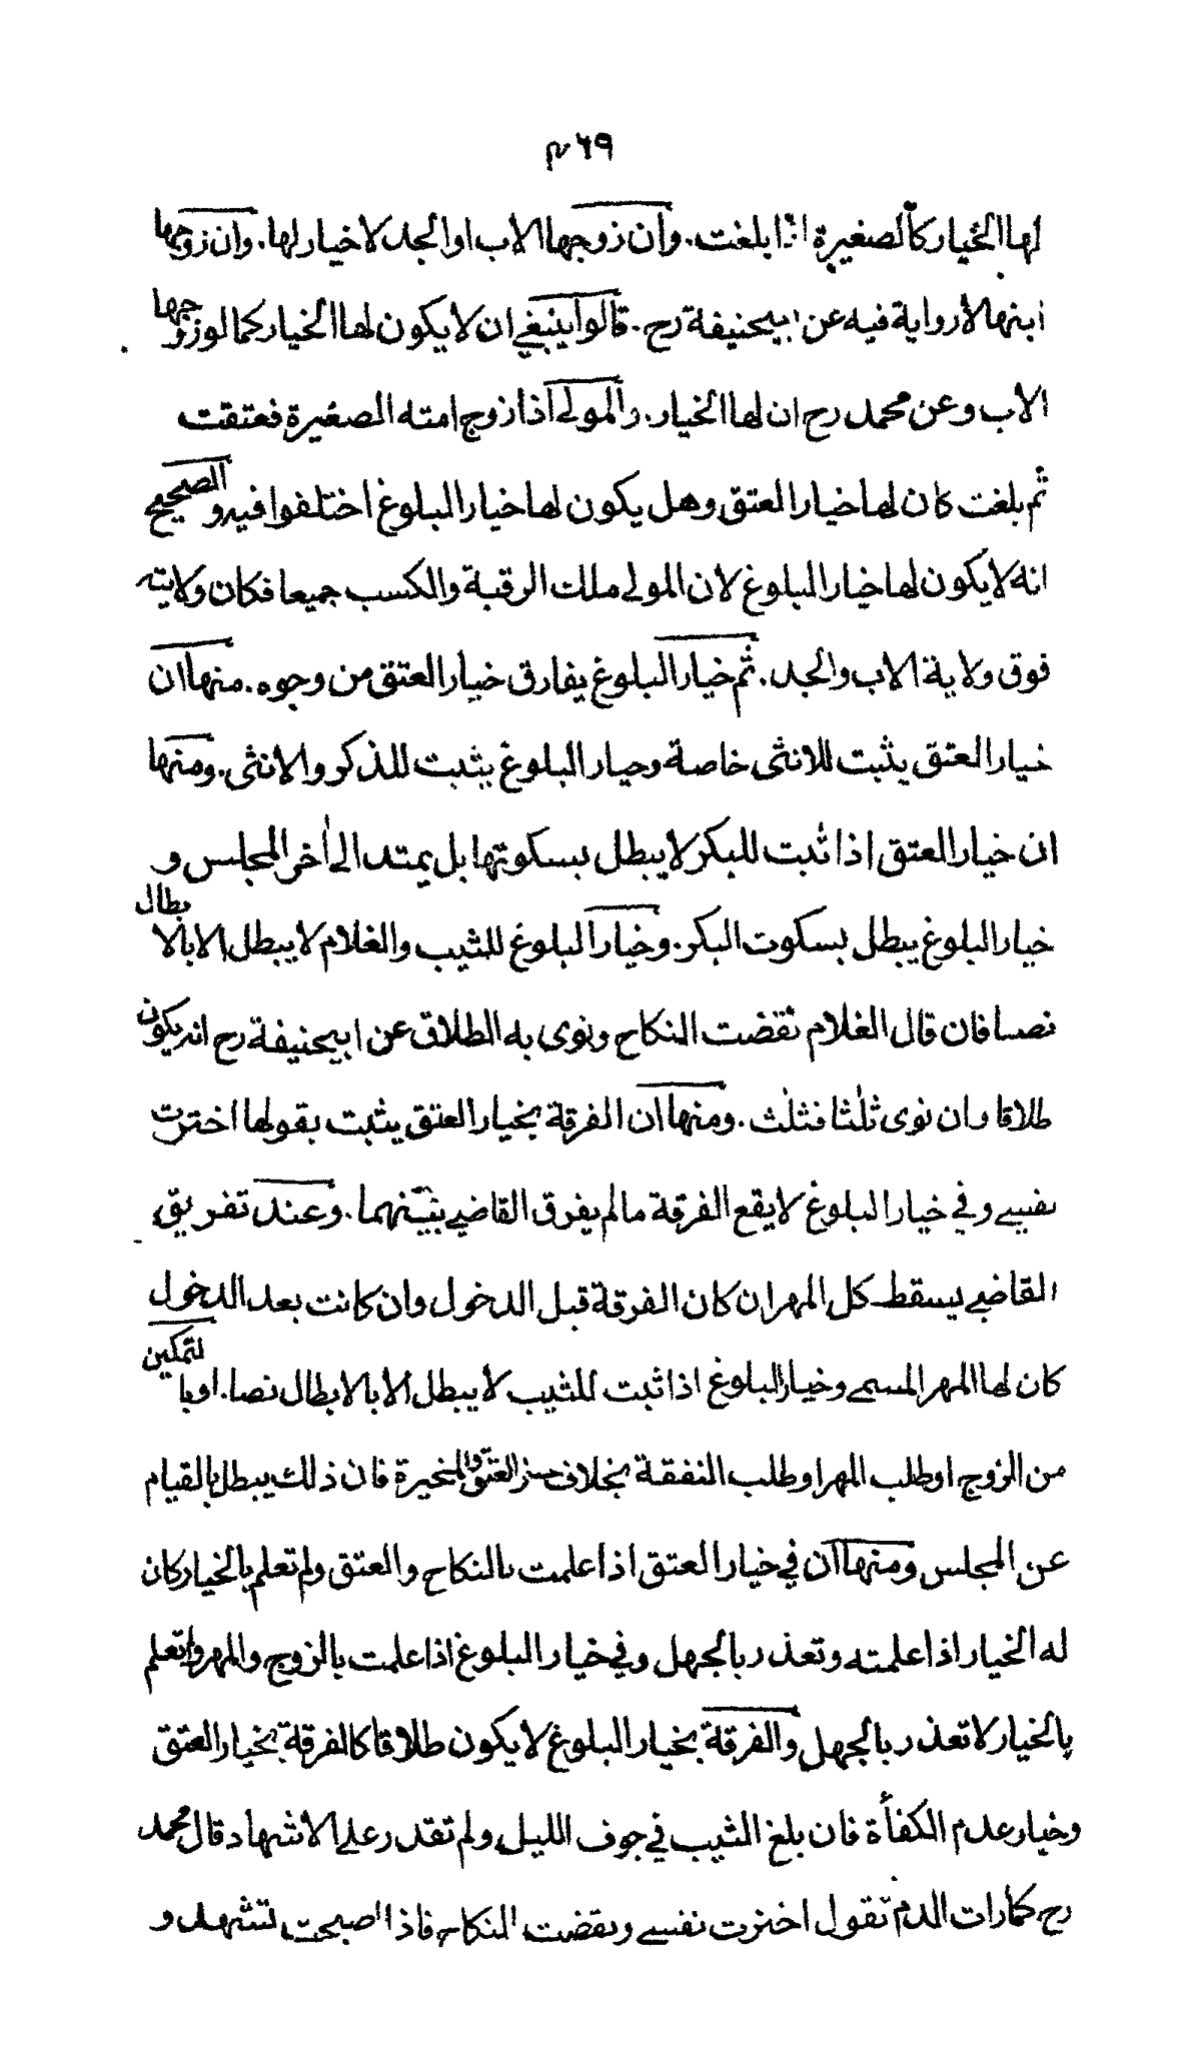 ٤٦٩
لها الخيار كالصغيرة اذا بلغت. وان زوجها الاب او الجد لا خيار لها. وان زوجها
ابنها لا رواية فيه عن ابيحنيفة رح. قالوا ينبغي ان لا يكون لها الخيار كما لو زوجها
الاب وعن محمد رح ان لها الخيار. والمولى اذا زوج امته الصغيرة فعتقت
ثم بلغت كان لها خيار العتق وهل يكون لها خيار البلوغ اختلفوا فيه والصحيح
انه لا يكون لها خيار البلوغ لان المولى ملك الرقبة والكسب جميعا فكان ولايته
فوق ولاية الاب والجد. ثم خيار البلوغ يفارق خيار العتق من وجوه. منها ان
خيار العتق يثبت للانثى خاصة وخيار البلوغ يثبت للذكر والانثى. ومنها
ان خيار العتق اذا ثبت للبكر لا يبطل بسكوتها بل يمتد الى اخر المجلس و
خيار البلوغ يبطل بسكوت البكر. وخيار البلوغ للثيب والغلام لا يبطل الا بالابطال
نصا فان قال الغلام نقضت النكاح ونوى به الطلاق عن ابيحنيفة رح انه يكون
طلاقا وان نوى ثلثا فثلث. ومنها ان الفرقة بخيار العتق يثبت بقولها اخترت
نفسي وفي خيار البلوغ لا يقع الفرقة ما لم يفرق القاضي بينهما. وعند تفريق
القاضي يسقط كل المهر ان كان الفرقة قبل الدخول وان كانت بعد الدخول
كان لها المهر المسمى وخيار البلوغ اذا ثبت للثيب لا يبطل الا بالابطال نصا. او بالتمكين
من الزوج او طلب المهر او طلب النفقة بخلاف العتق والمخيرة فان ذلك يبطل بالقيام
عن المجلس ومنها ان في خيار العتق اذا علمت بالنكاح والعتق ولم تعلم بالخيار كان
له الخيار اذا علمته وتعذر بالجهل وفي خيار البلوغ اذا علمت بالزوج والمهر ولم تعلم
بالخيار لا تعذر بالجهل والفرقة بخيار البلوغ لا يكون طلاقا كالفرقة بخيار العتق
وخيار عدم الكفأة فان بلغ الثيب في جوف الليل ولم تقدر على الاشهاد قال محمد
رح كما رات الدم تقول اخترت نفسي ونقضت النكاح فاذا اصبحت تشهد و